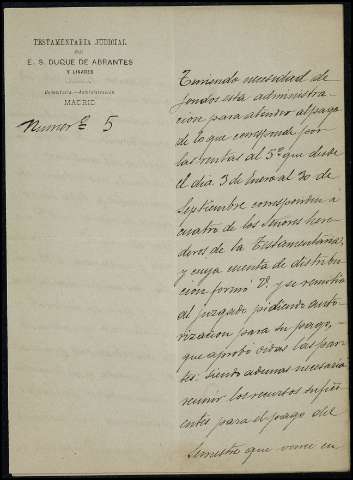 TESTAMENTARIA JUDICIAL
DEL
E. S. DUQUE DE ABRANTES
Y LINARES
Secretaría.—Administración
MADRID
Numero 5
Teniendo necesidad de
fondos esta administra-
cion para atender al pago
de lo que corresponde por
las rentas al 5º que desde
el dia 3 de Enero al 30 de
Septiembre corresponden á
cuatro de los Señores here-
deros de la Testamentaria,
y cuya cuenta de distribu-
cion formó V. y se remitió
al juzgado pidiendo auto-
rizacion para su pago,
que aprobó oidas las par-
tes: siendo ademas necesario
reunir los recursos sufici-
entes para el pago del
Semestre que vence en